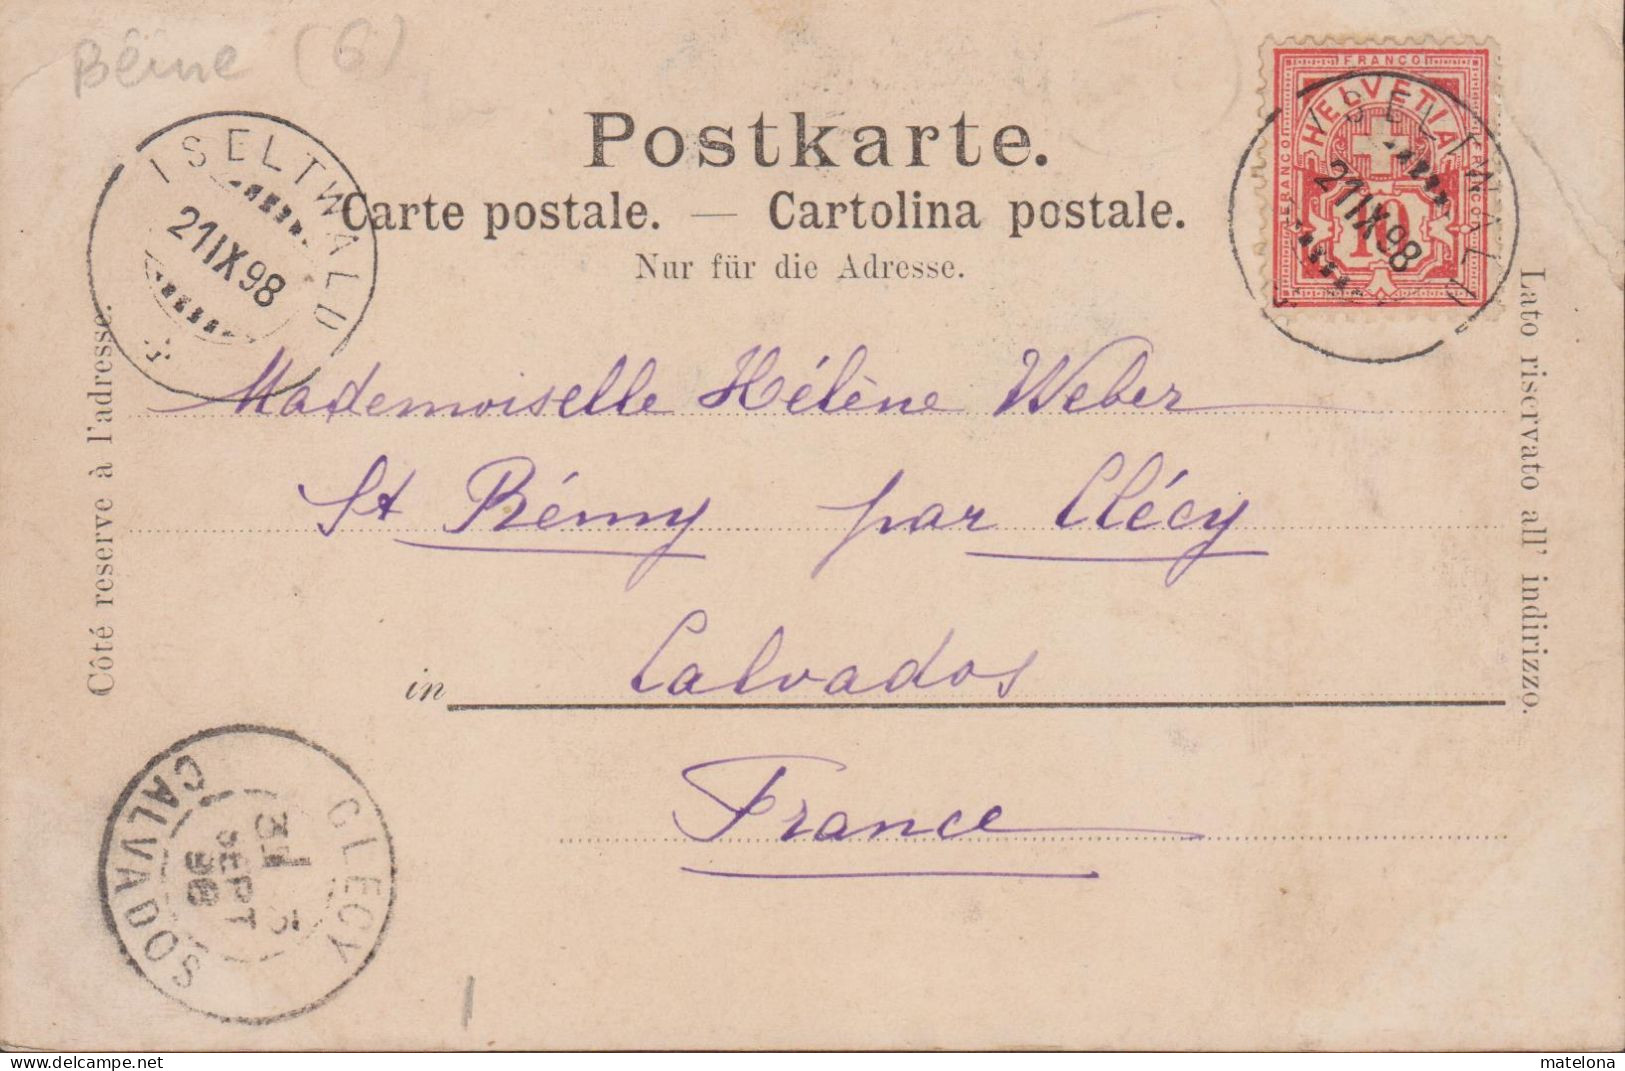 Béine (6)
Postkarte.
Carte postale. — Cartolina postale.
Nur für die Adresse.
ISELTWALD
21 IX 98
FRANCO
HELVETIA
FRANCO
FRANCO
10
ISELTWALD
21 IX 98
Côté reserve à l'adresse.
Lato riservato all' indirizzo.
Mademoiselle Hélène Weber
St Rémy par Clécy
in Calvados
France
CLECY
SEPT
98
CALVADOS
1
delcampe.net
matelona